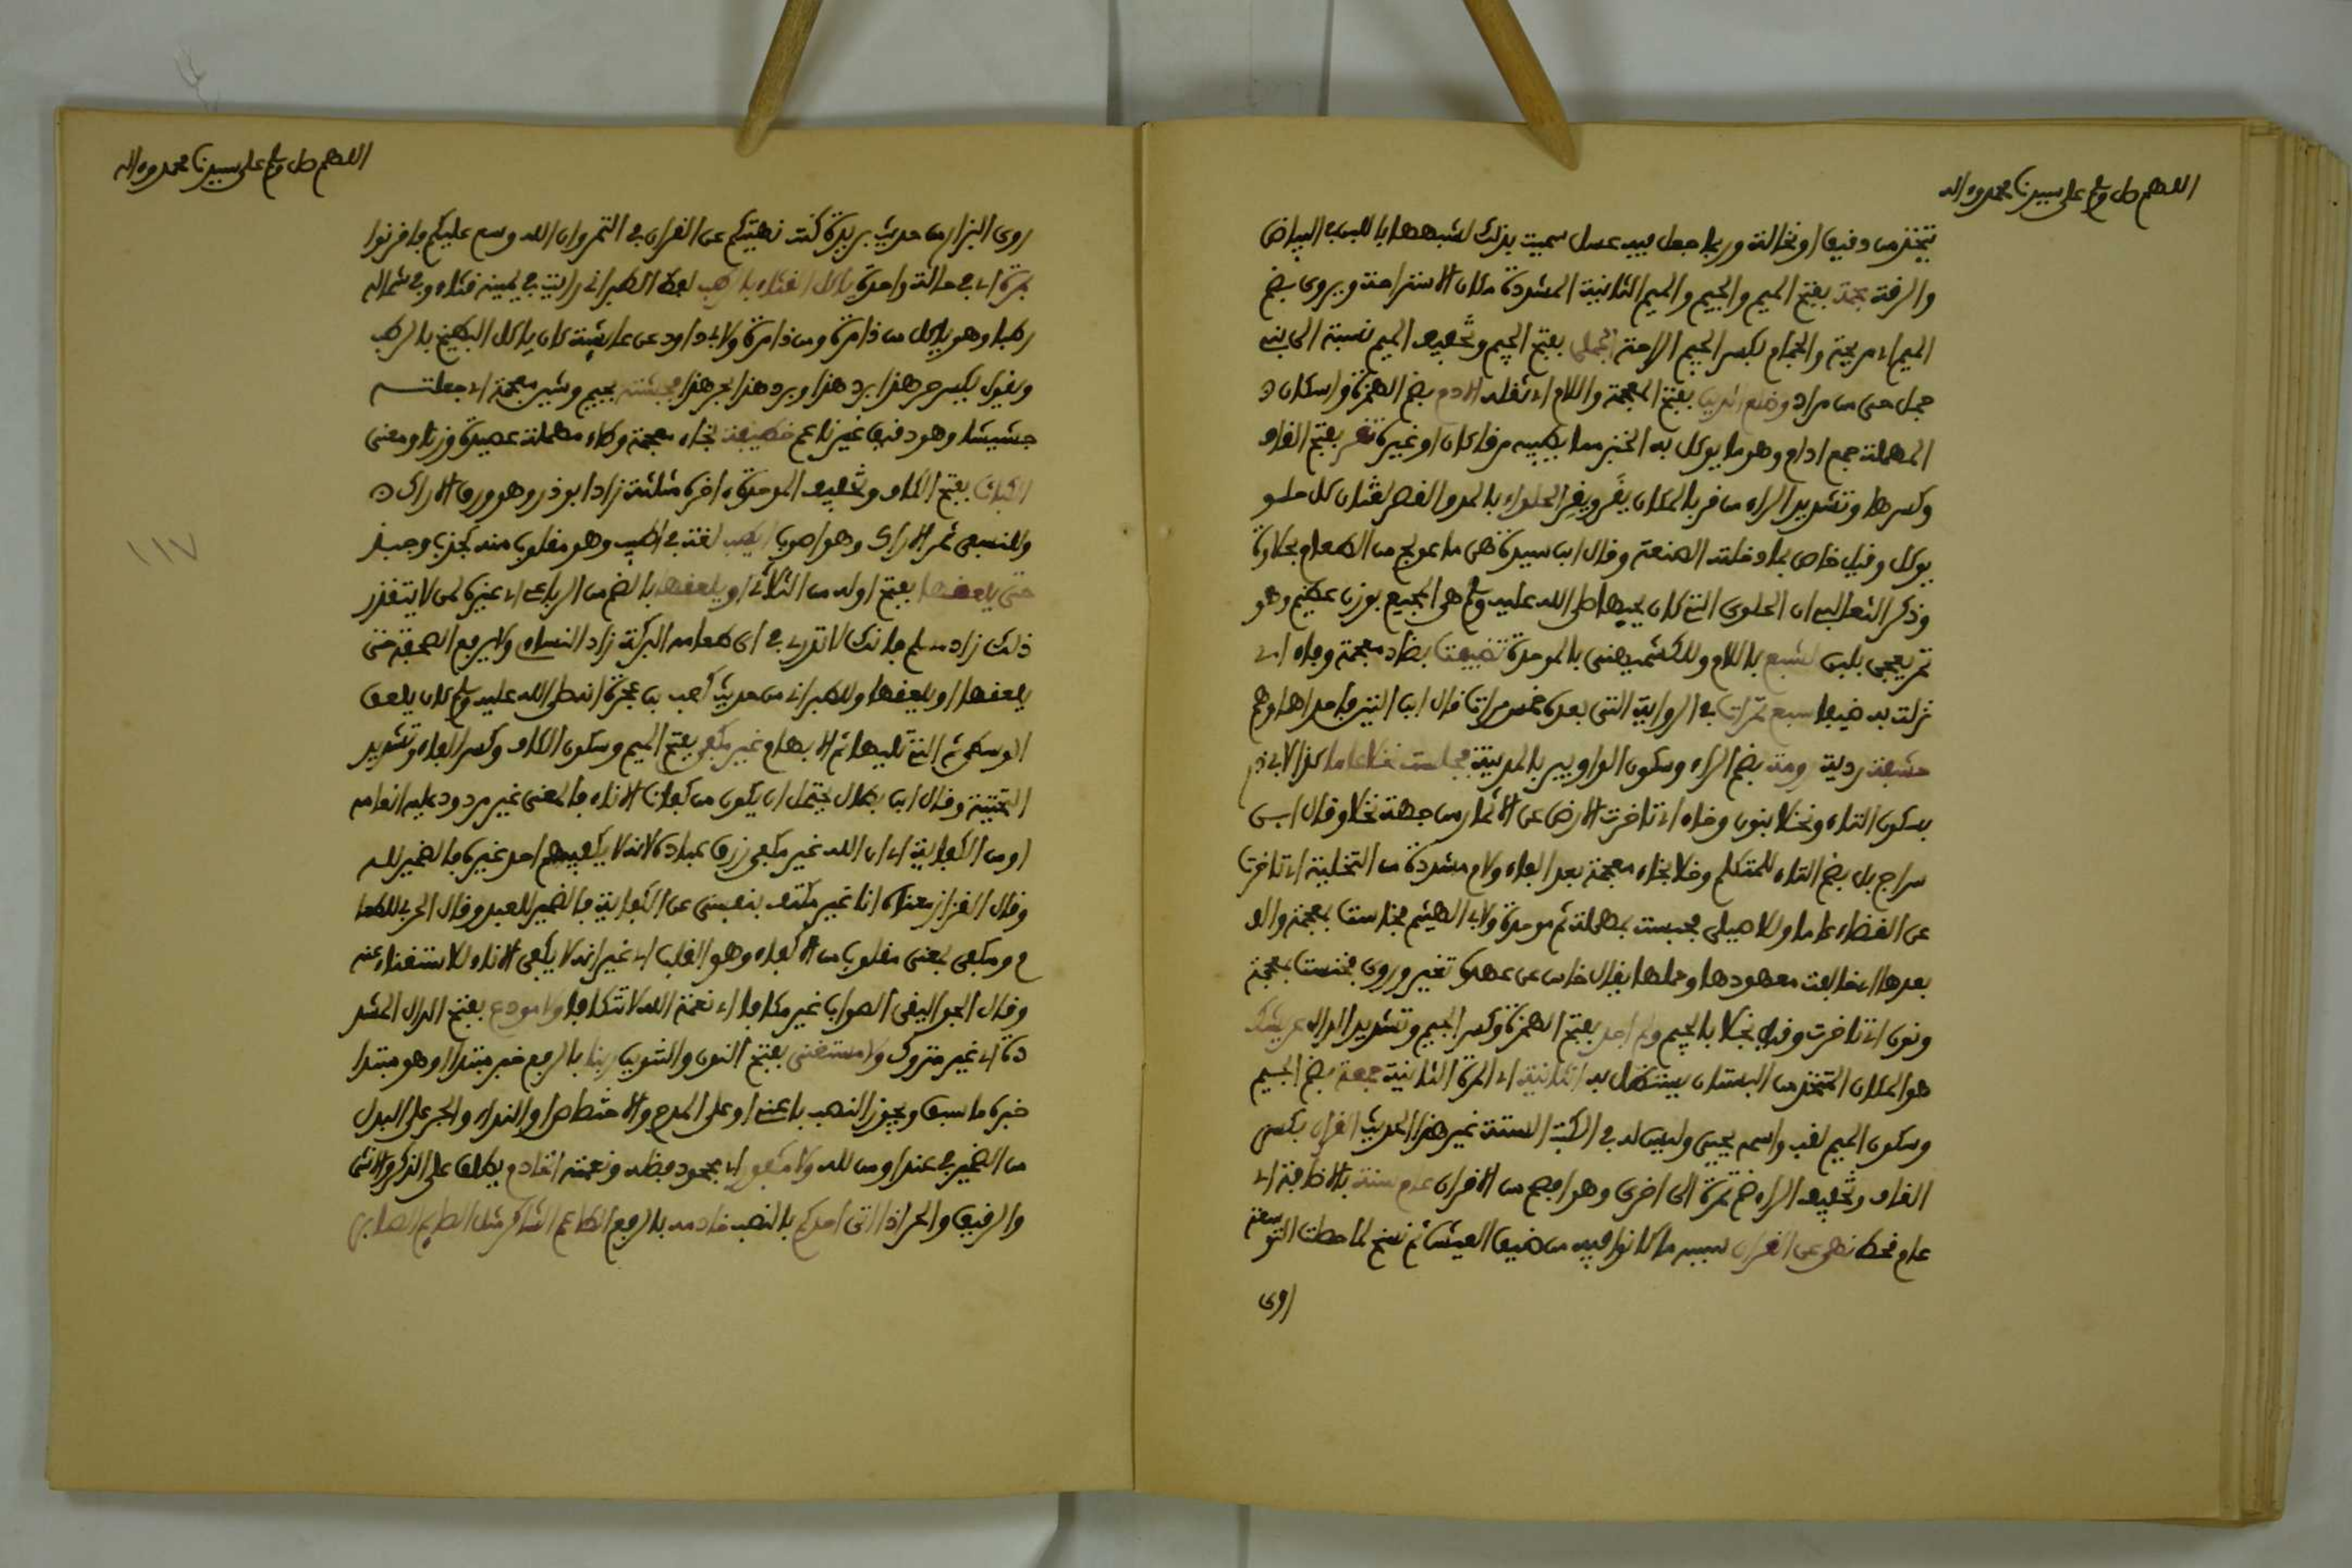 اللهم صل وسلم على سيدنا محمد وءاله
يتخذ من دقيق او نخالة وربما جعل فيه عسل سميت بذلك لشبهها باللبن في البياض
والرقة مجمة بفتح الميم والجيم والميم الثانية المشددة مكان الاستراحة ويروى بضم
الميم اي مريحة والجمام بكسر الجيم الراحة الجملي بفتح الجيم وتخفيف الميم نسبة الى بني
جمل حي من مراد وضلع الدين بفتح المعجمة واللام اي ثقله الادم بضم الهمزة واسكان د
المهملة جمع ادام وهو ما يوكل به الخبز مما يطيبه مرقا كان او غيره تقر بفتح القاف
وكسرها وتشديد الراء من قر بالمكان يقر ويقر الحلواء بالمد والقصر لغتان كل حلو
يوكل وقيل خاص بما دخلته الصنعة وقال ابن سيده هي ما عولج من الطعام بحلاوة
وذكر الثعالبي ان الحلوى التي كان يحبها صلى الله عليه وسلم هي المجيع بوزن عظيم وهو
تمر يعجن بلبن لشبع باللام وللكشميهني بالموحدة تضيفت بضاد معجمة وفاء اي
نزلت به ضيفا سبع تمرات في الرواية التي بعده خمس مرات قال ابن التين فاحداهما وهم
حشفة ردية رومة بضم الراء وسكون الواو بير بالمدينة فجلست فخلا عاما كذا لابي ذر
بسكون التاء ونخلا بنون وخاء اي تاخرت الارض عن الاثمار من جهة نخلا وقال ابن
سراج بل بضم التاء للمتكلم وخلا بخاء معجمة بعد الفاء ولام مشددة من التخلية اي تاخرت
عن القضاء عاما وللاصيلي فحبست بمهملة ثم موحدة ولابي الهيثم فخاست بمعجمة والف
بعدها اي خالفت معهودها وحملها يقال خاس عن عهده تغير وروى فخنست بمعجمة
ونون اي تاخرت وفيه نجلا بالجيم ولم اجد بفتح الهمزة وكسر الجيم وتشديد الدال عريشك
هو المكان المتخذ من البستان يستظل به الثانية اي المرة الثانية جمعة بضم الجيم
وسكون الميم لقب واسمه يحيى وليس له في الكتب الستة غير هذا الحديث القران بكسر
القاف وتخفيف الراء ضم تمرة الى اخرى وهو افصح من الاقران عام سنة بالاضافة اي
عام قحط نهى عن القران لسبب ما كانوا فيه من ضيق العيش ثم نسخ لما حصلت التوسعة
روى
اللهم صل وسلم على سيدنا محمد وءاله
روى البزار من حديث بريدة كنت نهيتكم عن القران في التمر وان الله وسع عليكم فاقرنوا
بمرة اي في حالة واحدة ياكل القثاء بالرطب لفظ الطبراني رايت في يمينه قثاء وفي شماله
رطبا وهو ياكل من ذا مرة ومن ذا مرة ولابي داود عن عايشة كان ياكل البطيخ بالرطب
ويقول يكسر حر هذا برد هذا وبرد هذا بحر هذا فجشته بجيم وشين معجمة اي جعلته
جشيشا وهو دقيق غير ناعم خطيفة بخاء معجمة وطاء مهملة عصيدة وزنا ومعنى
الكباث بفتح الكاف وتخفيف الموحدة ءاخره مثلثة زاد ابو ذر وهو ورق الاراك
وللنسفي ثمر الاراك وهو اصوب ايطب لغة في اطيب وهو مقلوب منه كجذب وجبذ
حتى يلعقها بفتح اوله من الثلاثي او يلعقها بالضم من الرباعي اي غيره لمن لا يتقذر
ذلك زاد مسلم فانه لا تدري في اي طعامه البركة زاد النساي ولا يرفع الصحفة حتى
يلعقها او يلعقها وللطبراني من حديث كعب بن عجرة انه صلى الله عليه وسلم كان يلعق
الوسطى ثم التي تليها ثم الابهام غير مكفي بفتح الميم وسكون الكاف وكسر الفاء وتشديد
التحتية وقال ابن بطال يحتمل ان يكون من كفات الاناء فالمعنى غير مردود عليه انعامه
او من الكفاية اي ان الله غير مكفي رزق عباده لانه لا يكفيهم احد غيره فالضمير لله
وقال القزاز معناه انا غير مكتف بنفسي عن الكفاية فالضمير للعبد وقال الحربي للطعا
م ومكفي بمعنى مقلوب من الاكفاء وهو القلب اي غير انه لا يكفى الاناء للاستغناء عنه
وقال الجواليقي الصواب غير مكافا اي نعمة الله لا تكافا ولا مودع بفتح الدال المشد
دة اي غير متروك ولا مستغنى بفتح النون والتنوين ربنا بالرفع خبر مبتدا او هو مبتدا
خبره ما سبق ويجوز النصب باعني او على المدح والاختصاص او النداء والجر على البدل
من الضمير في عنه او من لله ولا مكفور اي مجحود فضله ونعمته الخادم يطلق على الذكر والانثى
والرقيق والحر اذا اتى احدكم بالنصب خادمه بالرفع الطاعم الشاكر مثل الصايم الصابر
١١٧